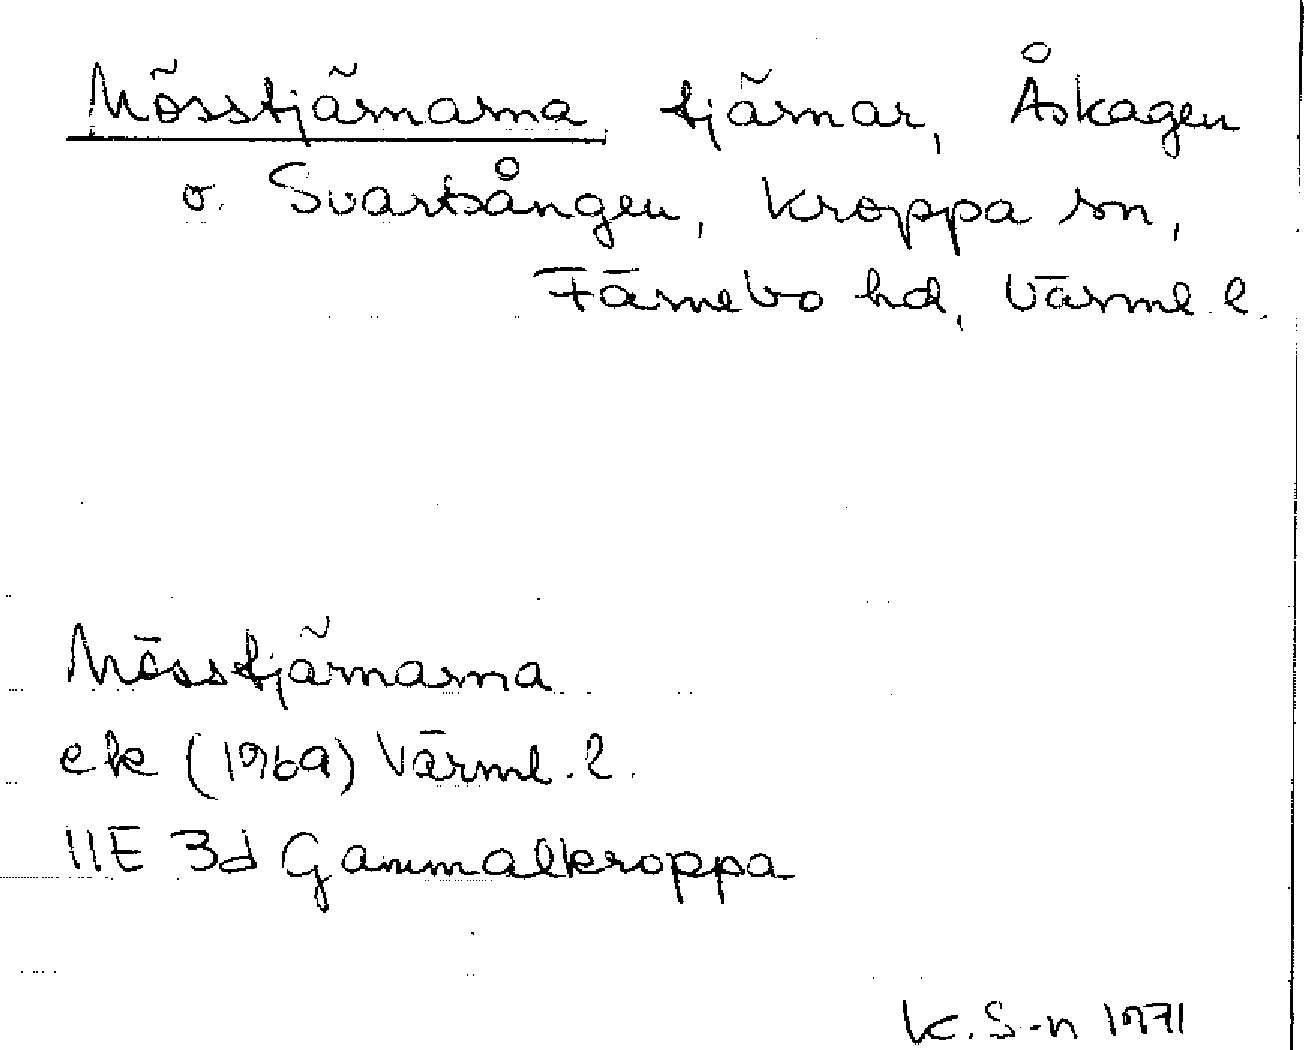 Mösstjärnarna tjärnar, Åskagen
o. Svartsången, Kroppa sn,
Färnebo hd, Värml. l.
Mösstjärnarna
ek (1969) Värml. l.
11E 3d Gammalkroppa
K. S-n 1971